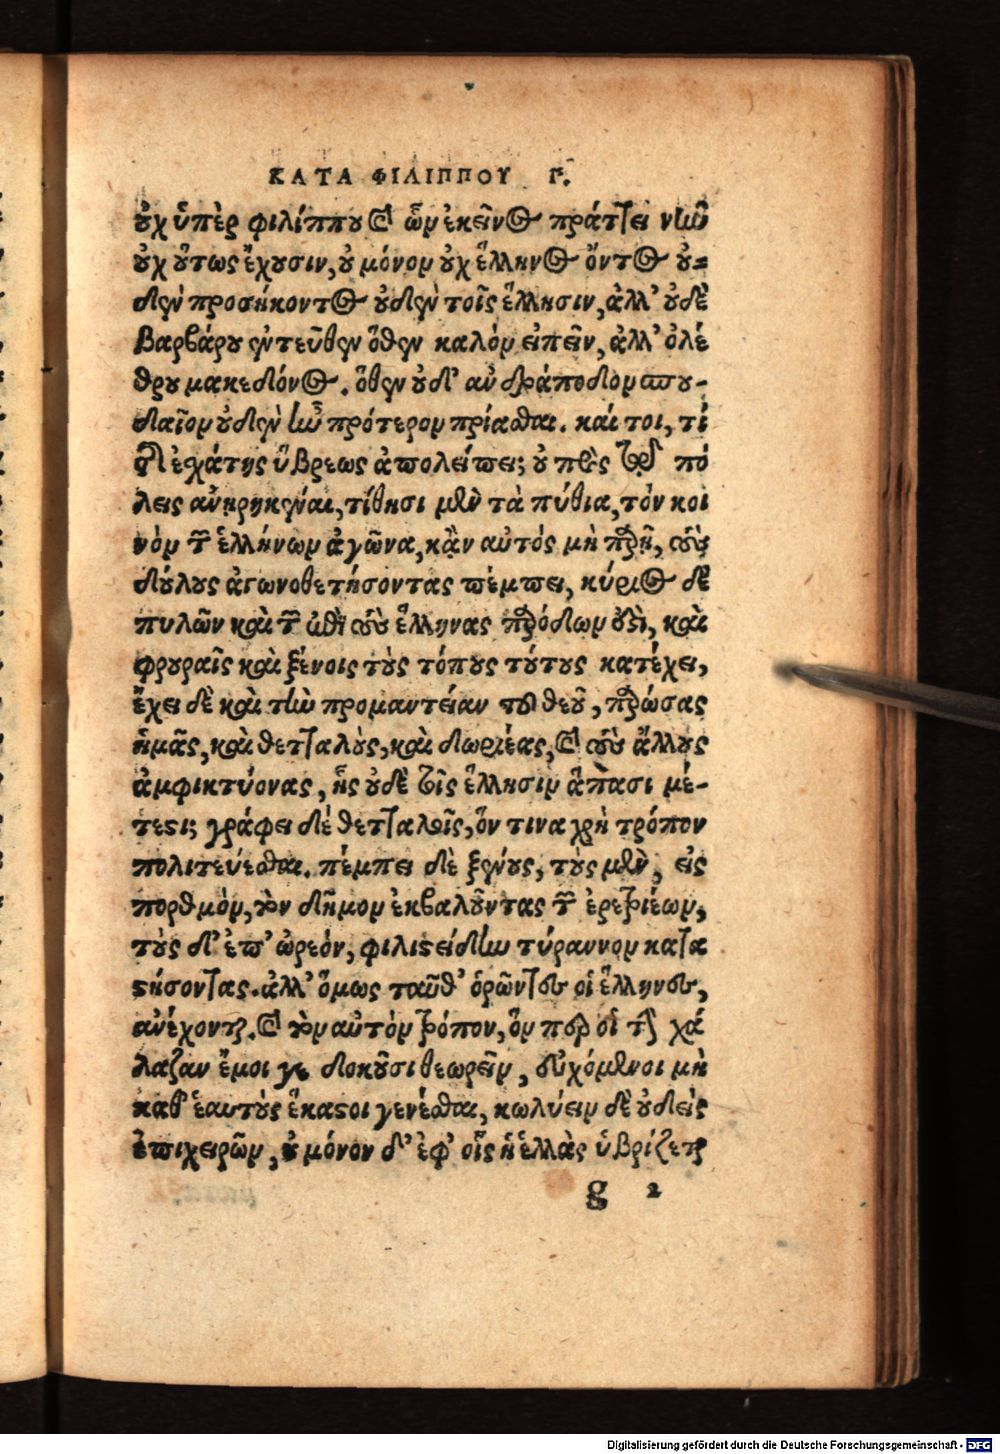 ΚΑΤΑ ΦΙΛΙΠΠΟΥ Γ.
οὐχ ὑπὲρ φιλίππου καὶ ὧν ἐκεῖνος πράττει νῦν
οὐχ οὕτως ἔχουσιν, οὐ μόνον οὐχ ἕλληνος ὄντος οὐ=
δὲν προσήκοντος οὐδὲν τοῖς ἕλλησιν, ἀλλ' οὐδὲ
βαρβάρου ἐντεῦθεν ὅθεν καλόν εἰπεῖν, ἀλλ' ὀλέ
θρου μακεδόνος. ὅθεν οὐδ' ἀνδράποδον σπου-
δαῖον οὐδὲν ἦν πρότερον πρίασθαι. καί τοι, τί
τῆς ἐσχάτης ὕβρεως ἀπολείπει; οὐ πρὸς τῷ πό
λεις ἀνῃρηκέναι, τίθησι μὲν τὰ πύθια, τὸν κοι
νὸν τῶν ἑλλήνων ἀγῶνα, κἂν αὐτὸς μὴ παρῇ, τοὺς
δούλους ἀγωνοθετήσοντας πέμπει, κύριος δὲ
πυλῶν καὶ τῶν ἐπὶ τοὺς ἕλληνας παρόδων ἐστὶ, καὶ
φρουραῖς καὶ ξένοις τοὺς τόπους τούτους κατέχει,
ἔχει δὲ καὶ τὴν προμαντείαν τοῦ θεοῦ, παρώσας
ἡμᾶς, καὶ θετταλοὺς, καὶ δωριέας, καὶ τοὺς ἄλλους
ἀμφικτύονας, ἧς οὐδὲ τοῖς ἕλλησιν ἅπασι μέ-
τεστι; γράφει δὲ θετταλοῖς, ὅν τινα χρὴ τρόπον
πολιτεύεσθαι. πέμπει δὲ ξένους, τοὺς μὲν, εἰς
πορθμὸν, τὸν δῆμον ἐκβαλοῦντας τῶν ἐρετριέων,
τοὺς δ' ἐπ' ὠρεόν, φιλιστείδην τύραννον κατα
στήσοντας. ἀλλ' ὅμως ταῦθ' ὁρῶντες οἱ ἕλληνες,
ἀνέχονται. καὶ τὸν αὐτὸν τρόπον, ὅν περ οἱ τὴν χά
λαζαν ἔμοι γε δοκοῦσι θεωρεῖν, εὐχόμενοι μὴ
καθ' ἑαυτοὺς ἕκαστοι γενέσθαι, κωλύειν δὲ οὐδεὶς
ἐπιχειρῶν, οὐ μόνον δ' ἐφ' οἷς ἡ ἑλλὰς ὑβρίζεται
g 2
Digitalisierung gefördert durch die Deutsche Forschungsgemeinschaft - DFG